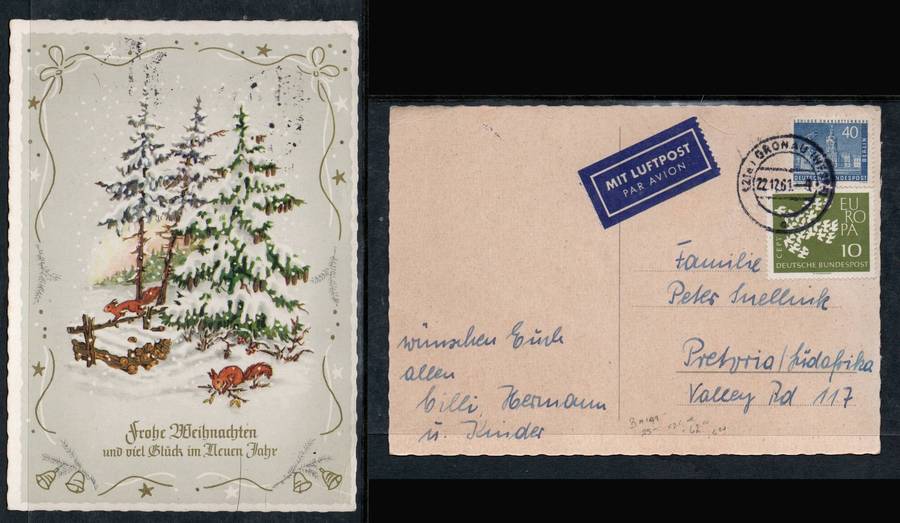 Frohe Weihnachten
und viel Glück im Neuen Jahr
MIT LUFTPOST
PAR AVION
GRONAU (WESTF)
22.12.61
40
BERLIN
DEUTSCHE BUNDESPOST
EUROPA
CEPT
10
DEUTSCHE BUNDESPOST
Familie
Peter Snellink
Pretoria / Südafrika
Valley Rd 117
wünschen Euch
allen
Cilli, Hermann
u. Kinder